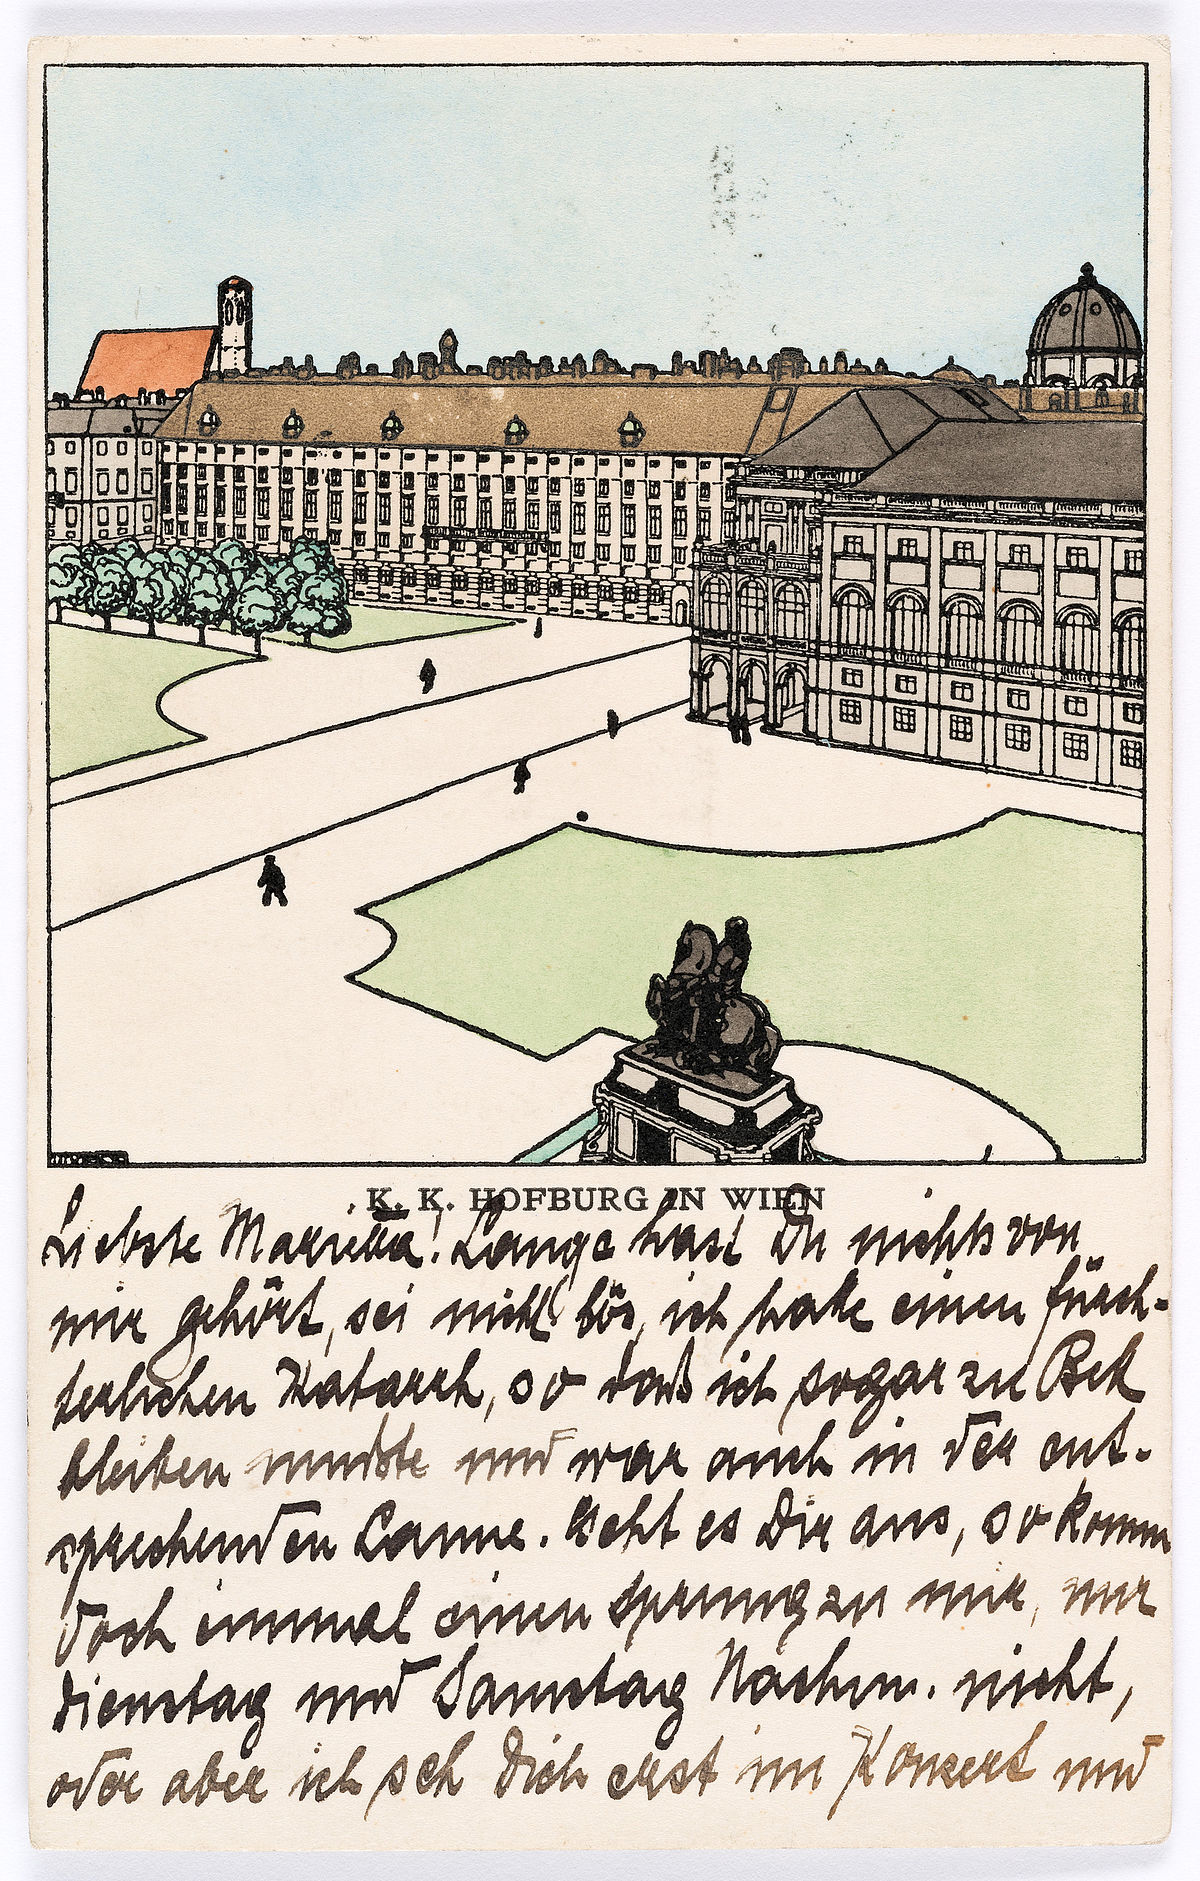 K. K. HOFBURG IN WIEN
Liebste Marietta! Lange hast Du nichts von
mir gehört, sei nicht bös, ich hatte einen fürch-
terlichen Katarrh, so daß ich sogar zu Bett
bleiben mußte und war auch in der ent-
sprechenden Laune. Geht es Dir aus, so komm
doch einmal einen Sprung zu mir, nur
Dienstag und Samstag Nachm. nicht,
oder aber ich seh Dich erst im Konzert und